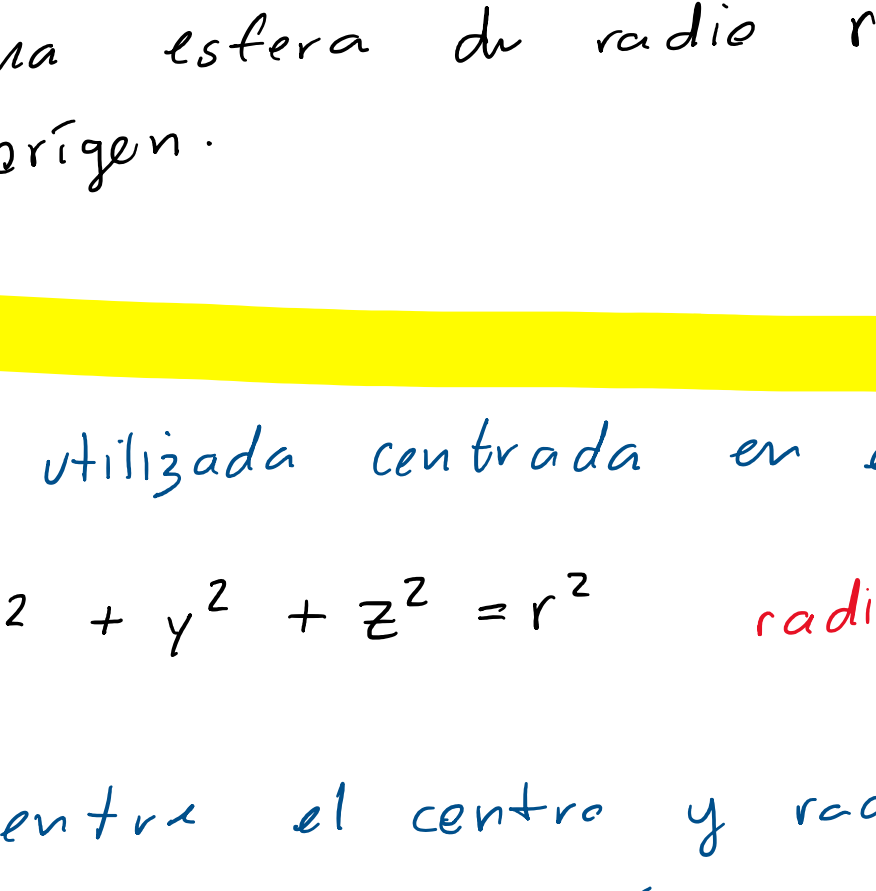 na esfera de radio r
orígen.
utilizada centrada en
2 + y² + z² = r² radi
entre el centro y rad